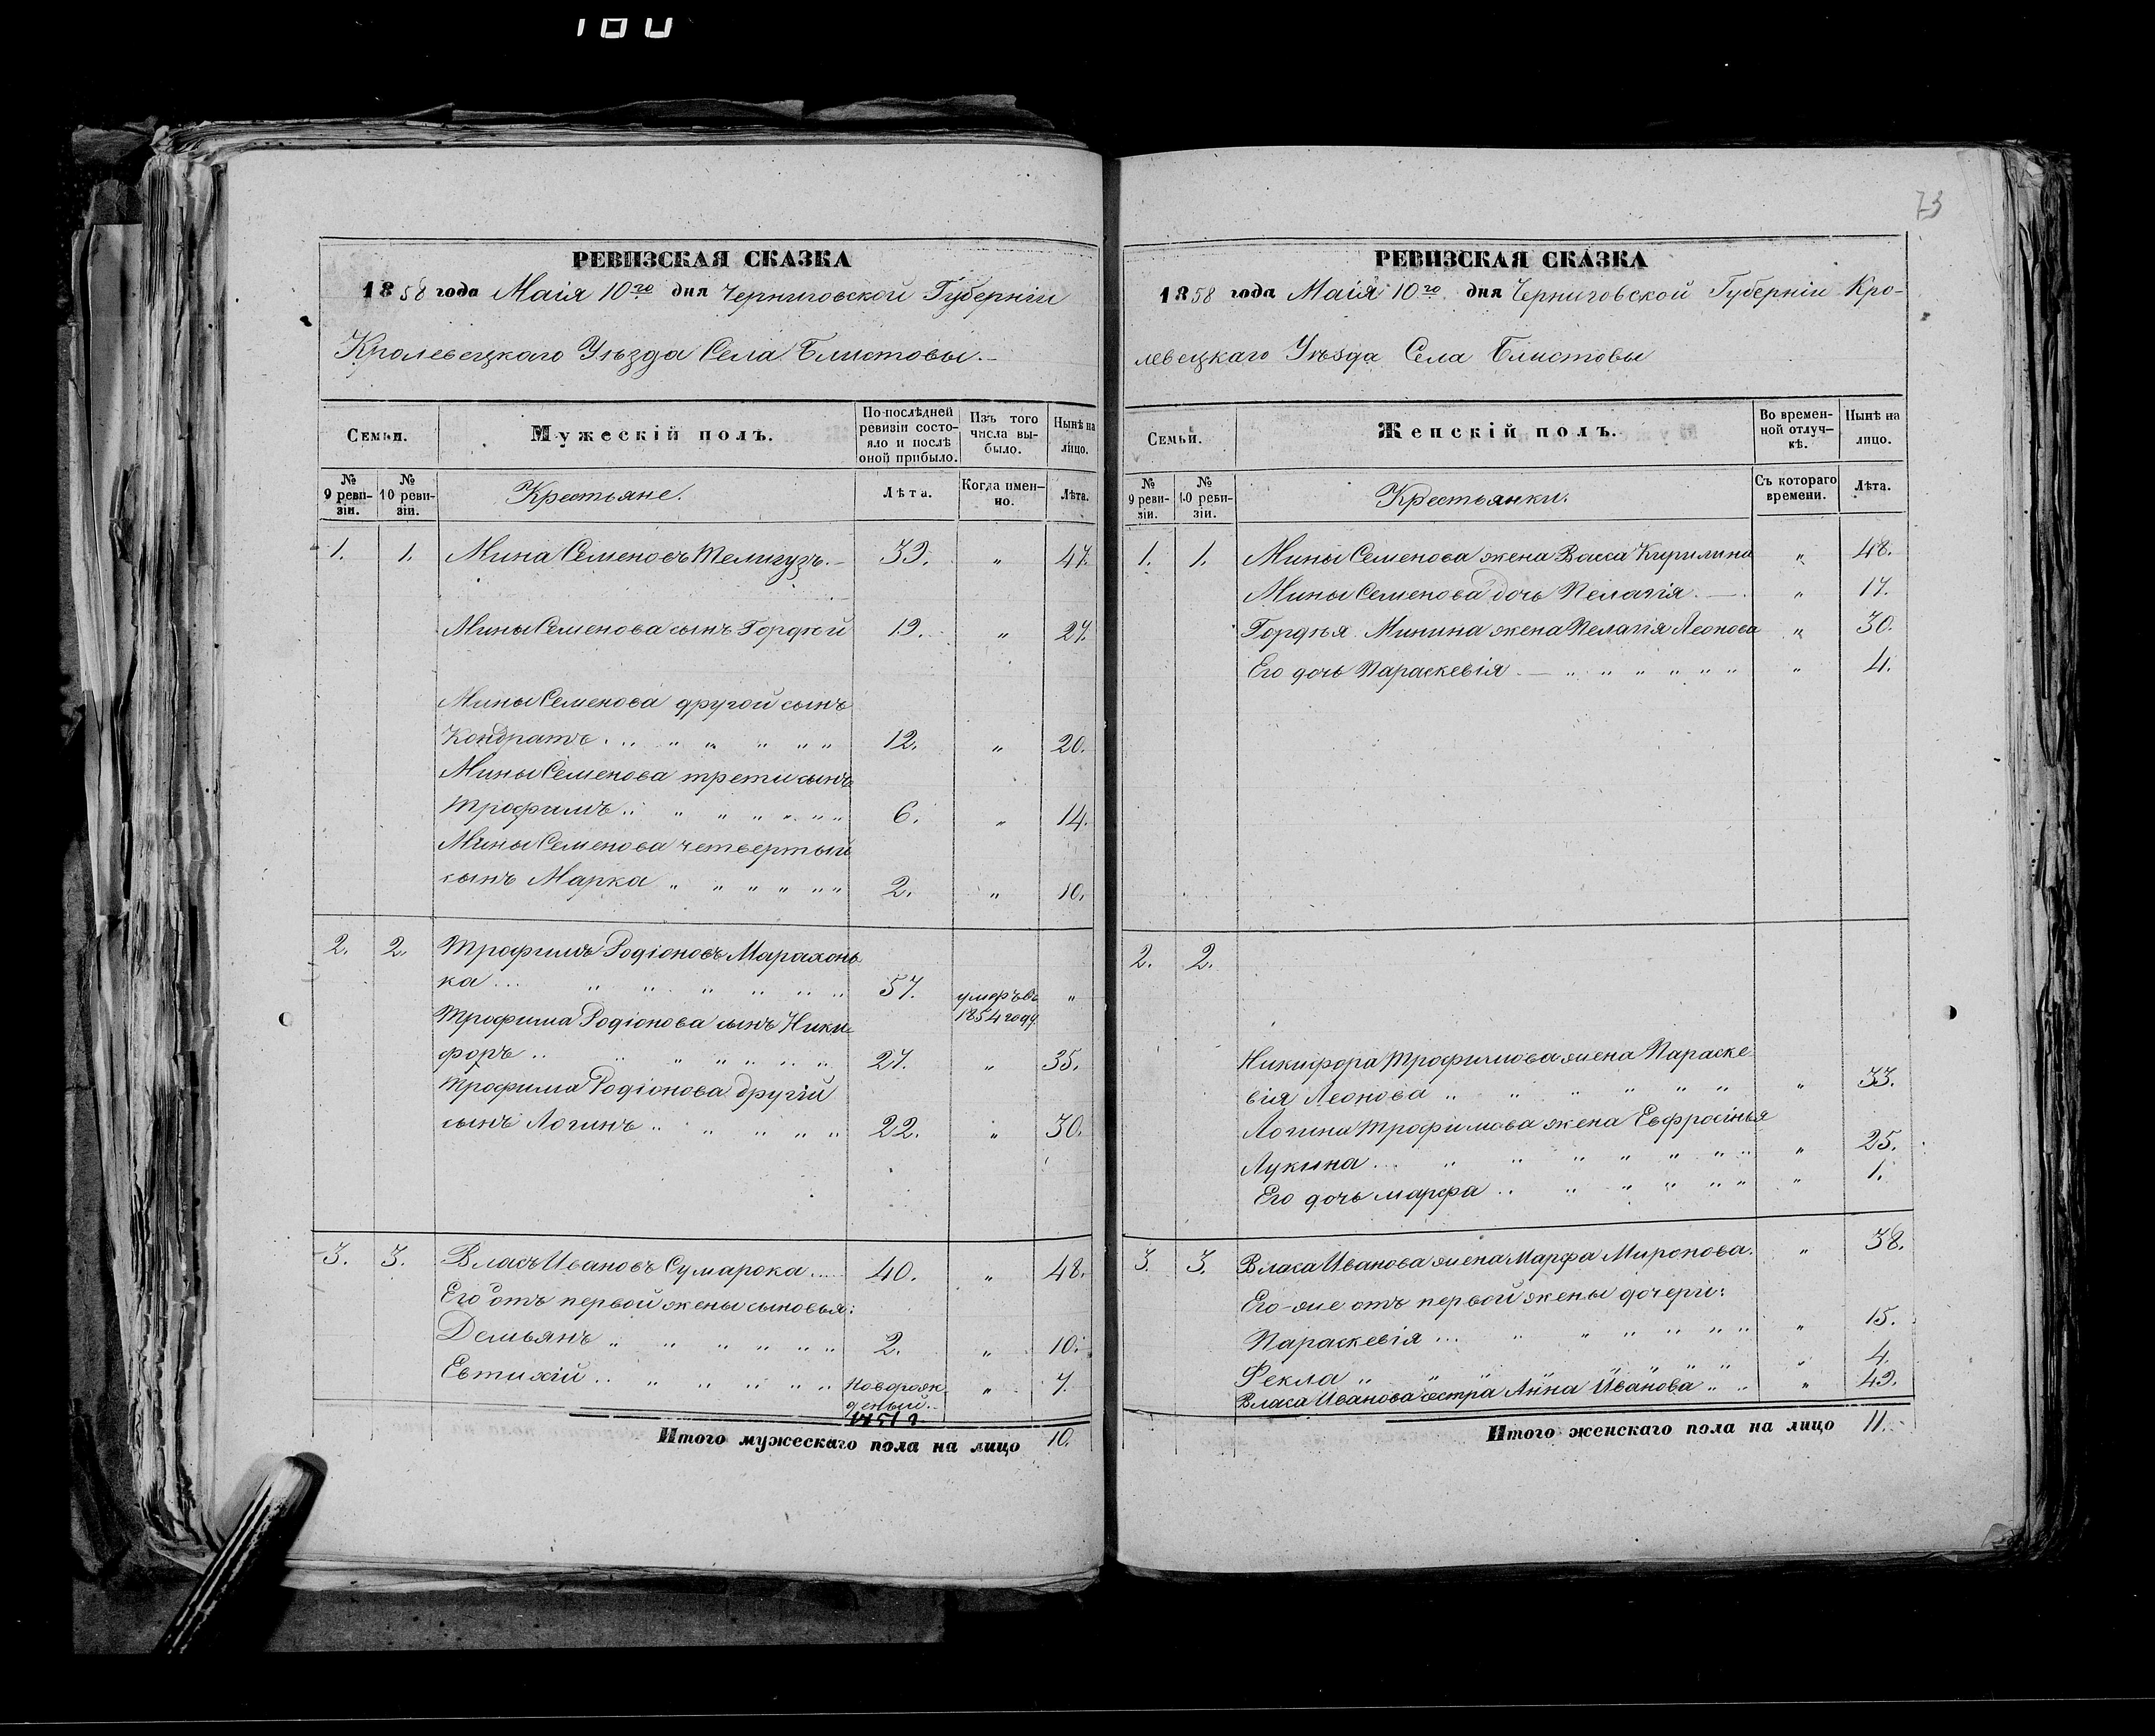 100
РЕВИЗСКАЯ СКАЗКА
1858 года Маія 10го дня Черниговской Губерніи
Кролевецкаго Уѣзда Села Блистовы.
Семьи.
Мужескій полъ.
По послѣдней ревизіи состояло и послѣ оной прибыло.
Изъ того числа выбыло.
Нынѣ на лицо.
№ 9 ревизіи.
№ 10 ревизіи.
Крестьяне.
Лѣта.
Когда именно.
Лѣта.
1. 1. Мина Семеновъ Телигузъ. 39. " 47.
Мины Семенова сынъ Гордѣй 19. " 27.
Мины Семенова другой сынъ
Кондратъ. " " " " " " 12. " 20.
Мины Семенова трети сынъ
Трофимъ " " " " " " 6. " 14.
Мины Семенова четвертый
сынъ Марка " " " " " " 2. " 10.
2. 2. Трофимъ Родіоновъ Марахонь
ка ... " " " " " " 57. умеръ въ 1854 году "
Трофима Родіонова сынъ Ники
форъ .. " " " " " " 27. " 35.
Трофима Родіонова другій
сынъ Логинъ " " " " " 22. " 30.
3. 3. Власъ Ивановъ Сумарока .... 40. " 48.
Его отъ первой жены сыновья:
Демьянъ " " " " " " 2. " 10.
Евтихій .. " " " " " Новорожденый 1851 г. " 7.
Итого мужескаго пола на лицо 10.
73
РЕВИЗСКАЯ СКАЗКА
1858 года Маія 10го дня Черниговской Губерніи Кро-
левецкаго Уѣзда Села Блистовы
Семьи.
Женскій полъ.
Во временной отлучкѣ.
Нынѣ на лицо.
№ 9 ревизіи.
№ 10 ревизіи.
Крестьянки.
Съ котораго времени.
Лѣта.
1. 1. Мины Семенова жена Васса Кирилина " 48.
Мины Семенова дочь Пелагія. — " 17.
Гордѣя Минина жена Пелагія Леонова " 30.
Его дочь Параскевія. — " " " " " " " 4.
2. 2.
Никифора Трофимова жена Параске
вія Леонова " " " " " " " 33.
Логина Трофимова жена Евфросінья
Лукина ... " " " " " " " " 25.
Его дочь Марфа .. " " " " " " 1.
3. 3. Власа Иванова жена Марфа Миронова. " 38.
Его-же отъ первой жены дочери:
Параскевія ... " " " " " " " 15.
Фекла " " " " " " " 4.
Власа Иванова сестра Анна Иванова " " " 49.
Итого женскаго пола на лицо 11.